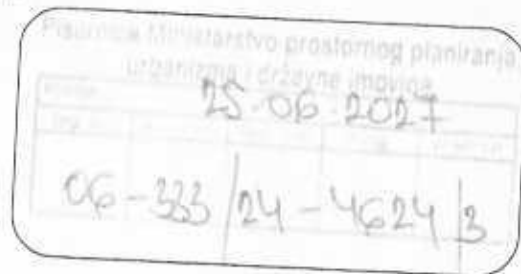 Pisarnica Ministarstvo prostornog planiranja,
urbanizma i državne imovine
25.06.2027
06-333/24-4624/3